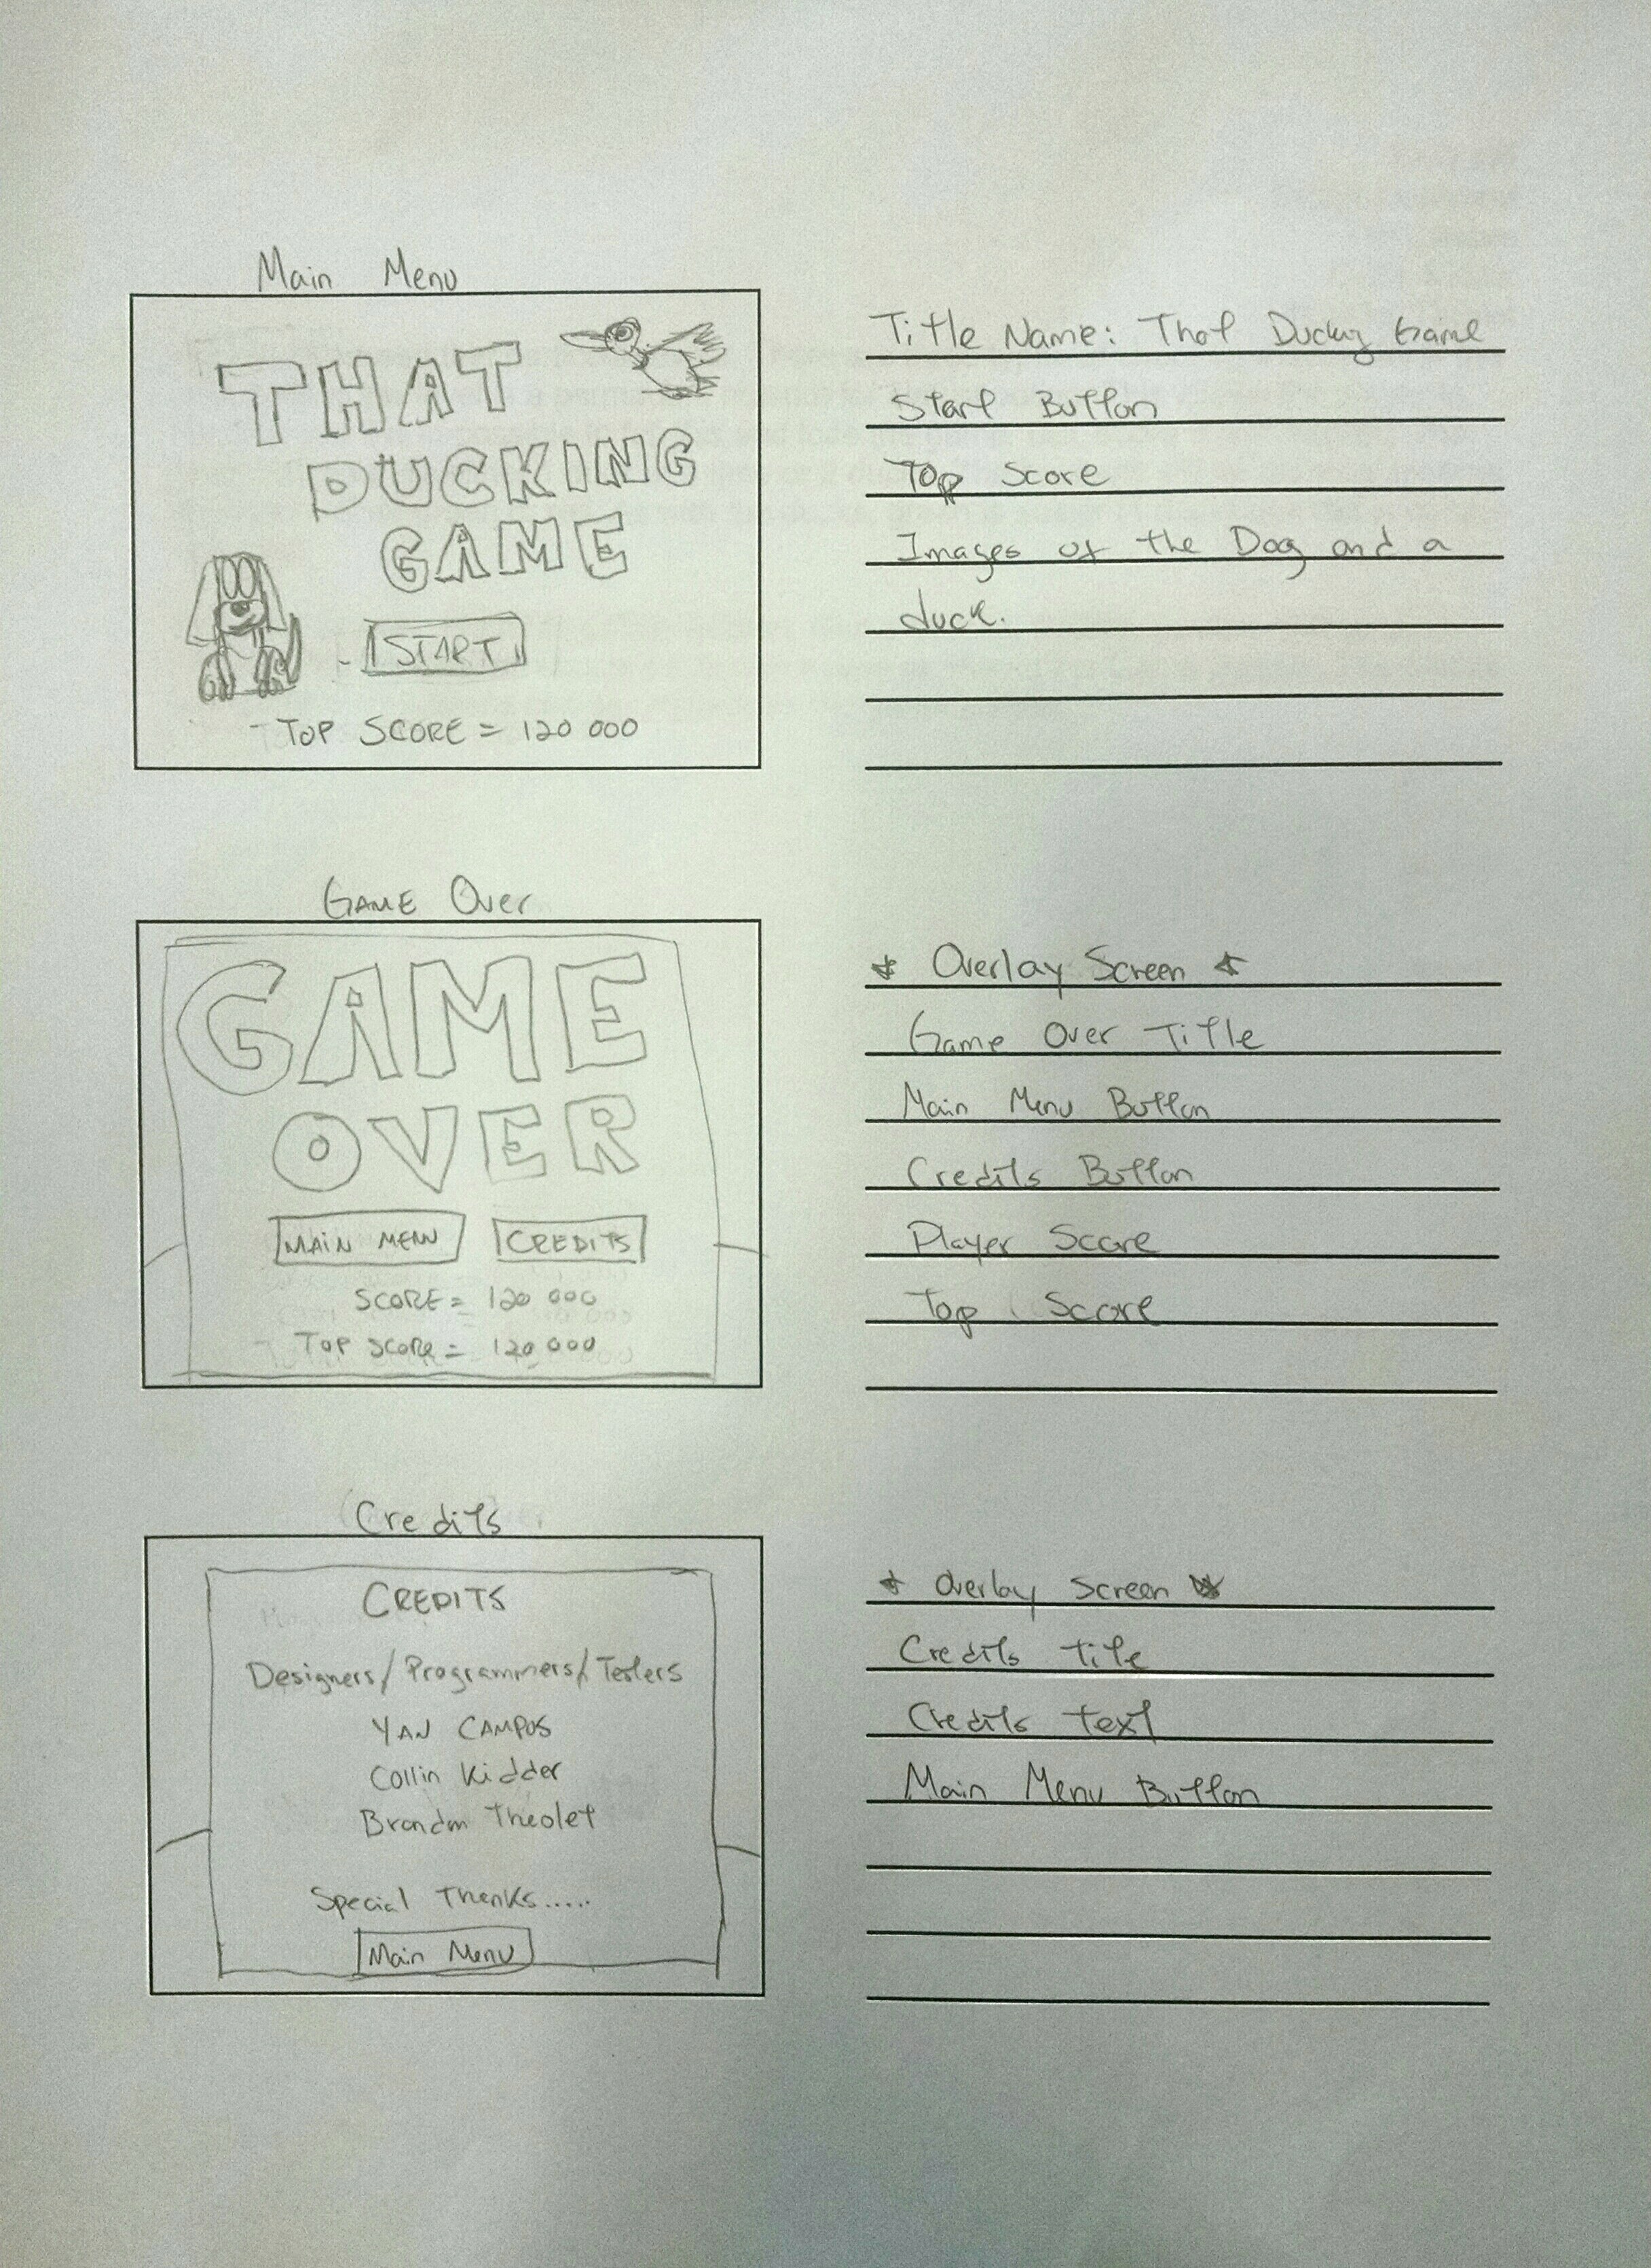 Main Menu
THAT
DUCKING
GAME
START
- TOP SCORE = 120 000
Title Name: That Ducking Game
Start Button
Top Score
Images of the Dog and a
duck.
GAME Over
GAME
OVER
MAIN MENU CREDITS
SCORE = 120 000
TOP SCORE = 120 000
* Overlay Screen *
Game Over Title
Main Menu Button
Credits Button
Player Score
Top Score
Credits
CREDITS
Designers/Programmers/Testers
YAN CAMPOS
Collin Kidder
Brandon Theolet
Special Thanks.....
Main Menu
* Overlay Screen *
Credits Title
Credits Text
Main Menu Button